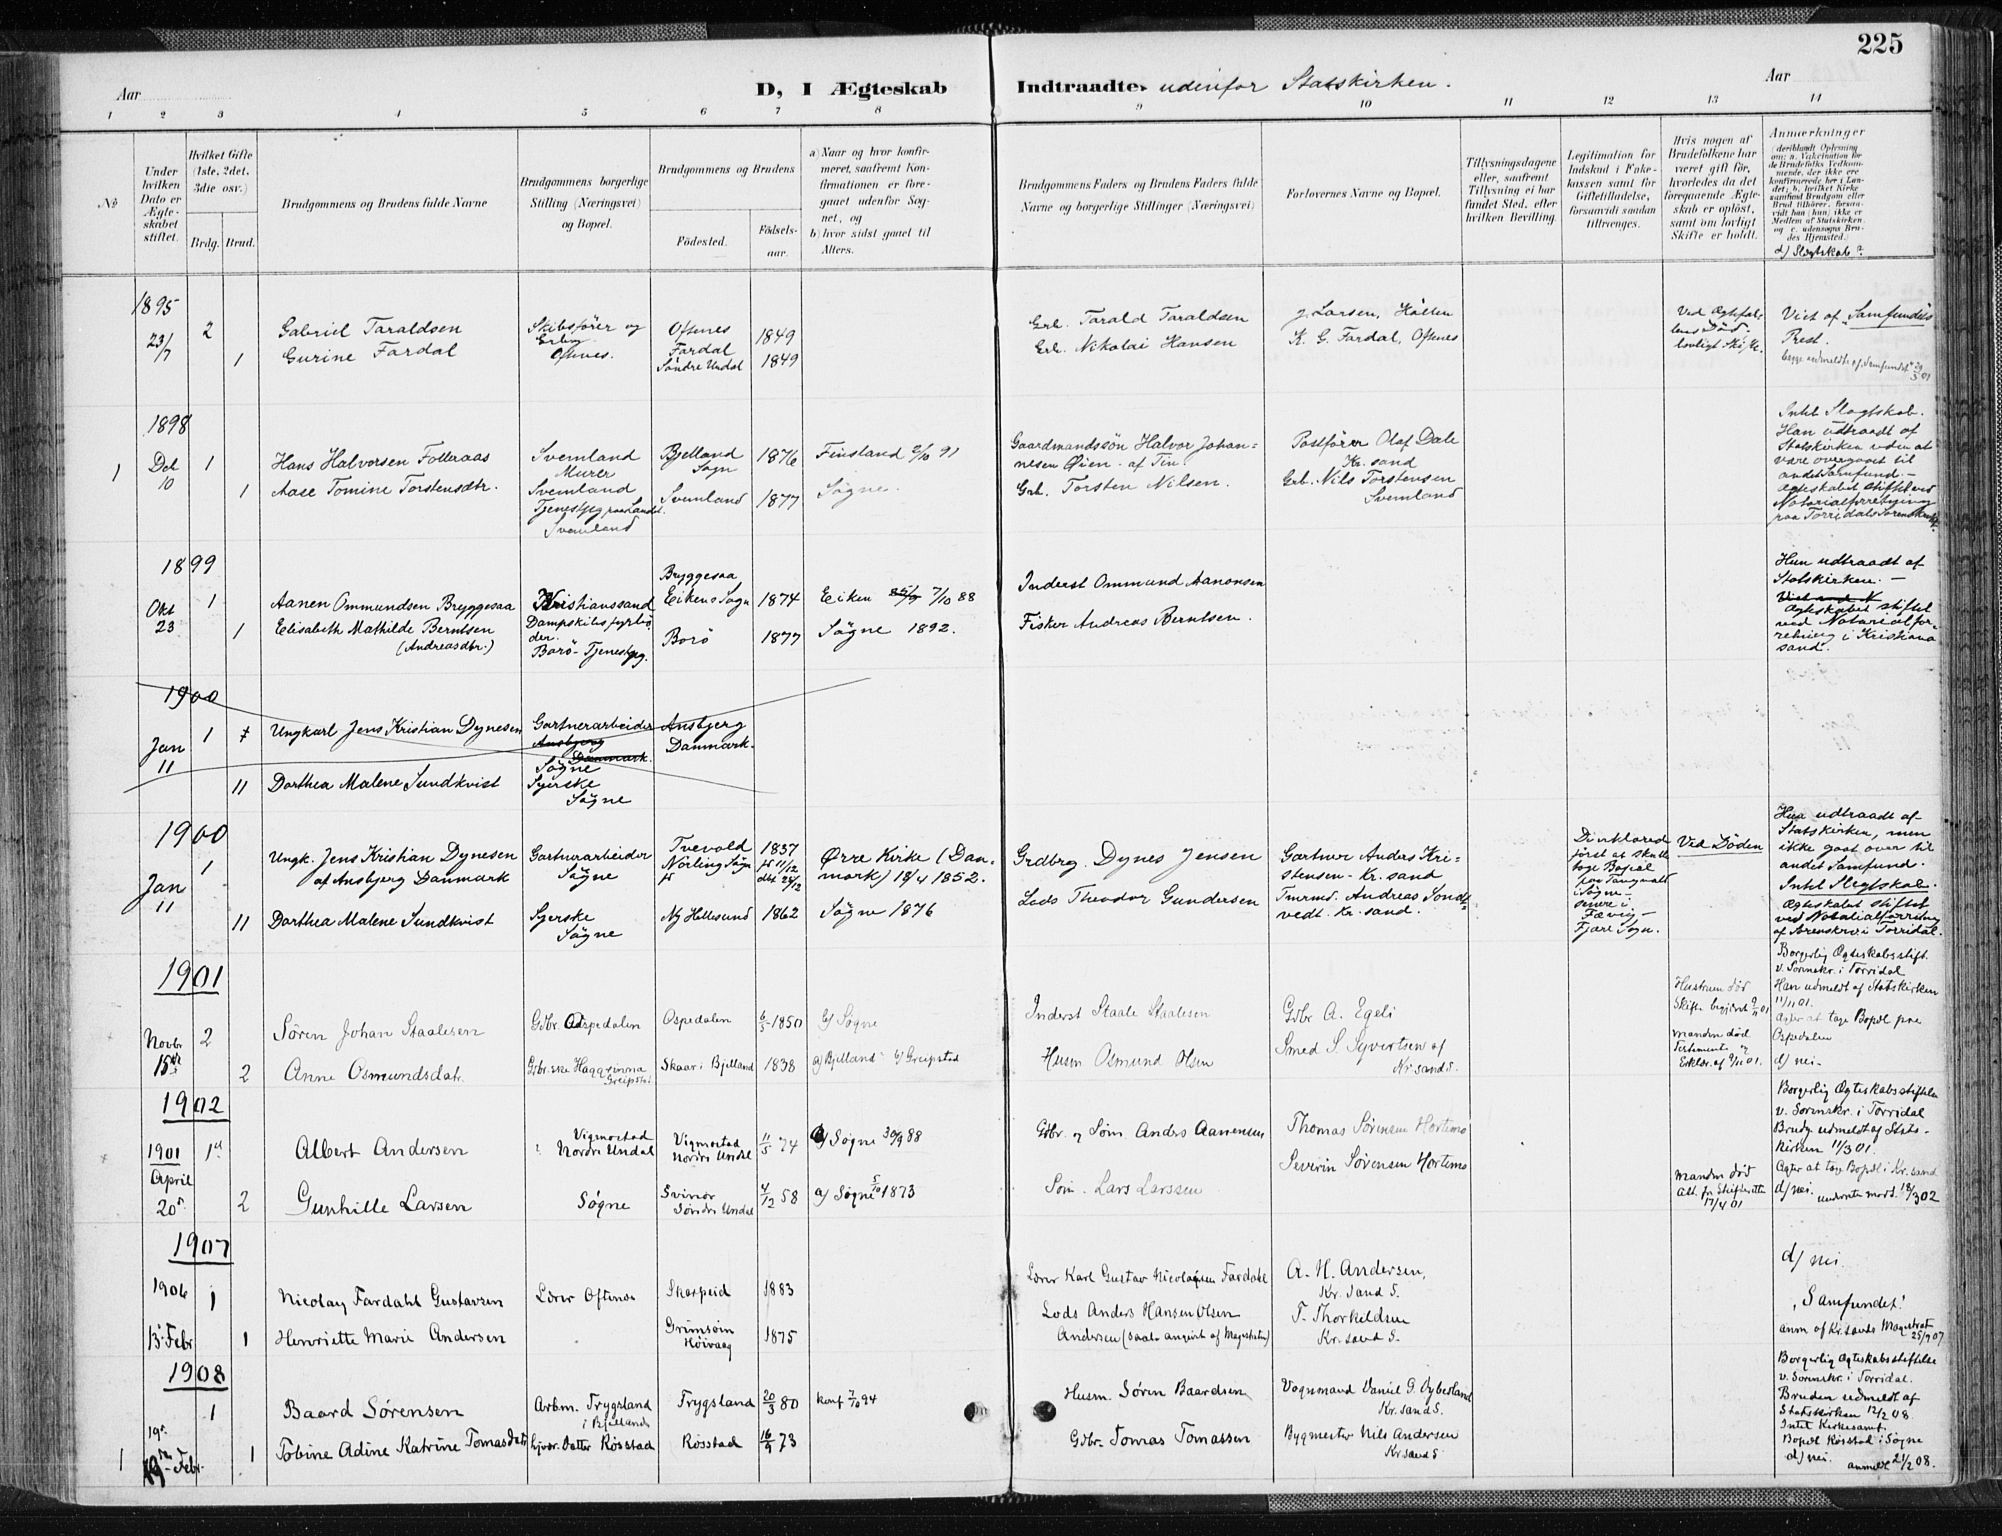 225
Aar
D, I Ægteskab Indtraadte, udenfor Statskirken.
Aar
1 2 3 4 5 6 7 8 9 10 11 12 13 14
No
Under
hvilken
Dato er
Ægte-
skabet
stiftet.
Hvilket Gifte
(1ste, 2det,
3die osv.)
Brdg. Brud.
Brudgommens og Brudens fulde Navne
Brudgommens borgerlige
Stilling (Næringsvei)
og Bopæl.
Brudgommens og Brudens
Fødested.
Fødsels-
aar.
a) Naar og hvor konfir-
meret, saafremt Kon-
firmationen er fore-
gaaet udenfor Sog-
net, og
b) hvor sidst gaaet til
Alters.
Brudgommens Faders og Brudens Faders fulde
Navne og borgerlige Stillinger (Næringsvei)
Forlovernes Navne og Bopæl.
Tillysningsdagene
eller, saafremt
Tillysning ei har
fundet Sted, efter
hvilken Bevilling.
Legitimation for
Indskud i Enke-
kassen samt for
Giftetilladelse,
forsaavidt saadan
tiltrænges.
Hvis nogen af
Brudefolkene har
været gift før,
hvorledes da det
foregaaende Ægte-
skab er opløst,
samt om lovligt
Skifte er holdt.
Anmærkninger
(deriblandt Oplysning
om: a. Vakcination for
de Brudefolks Vedkom-
mende, der ikke ere
konfirmerede her i Lan-
det; b. hvilket Kirke
samfund Brudgom eller
Brud tilhører, forsaa-
vidt han (hun) ikke er
Medlem af Statskirken,
og c. udensogns Bru-
des Hjemsted.
d) Slægtskab?
1895
23/7 2
Gabriel Taraldsen
Skibsfører og
Oftenes.
Oftnes
1849
Grb. Tarald Taraldsen
J. Larsen, Holten
Ved Ægtefæl-
lens Død-
lovligt Skifte.
Viet af "Samfundets
Prest.
1
Gurine Fardal
Fardal
Søndre Undal
1849
Grb. Nikolai Hansen
K. G. Fardal, Oftenes
begge udmeldt af "Samfundet"
1898
1 Det 10 1
Hans Halvorsen Folleraas
Svemland
Murer
Bjelland
Sogn
1876
Finsland 2/10 91
Gaardmandssøn Halvor Johan-
nesen Øien af Tin
Postfører Olaf Dale
Kr.sand
Intet Slægtskab.
Han udtraadt af
Statskirken uden at
være overgaaet til
andet Samfund.-
Ægteskabet stiftet ved
Notarialforretning
paa Torridals Sorenskr.
1
Aase Tomine Torstensdtr.
Svemland
Svemland
Svemland
1877
Søgne.
Grb. Torsten Nilsen.
Grb. Nils Torstensen
Svemland
1899
Okt 23 1
Aanen Ommundsen Bryggesaa
Kristianssand
Dampskibsfyrbø-
der.
Bryggesaa
Eikens Sogn
1874
Eiken 7/10 88
Inderst Ommund Aanonsen
Hun udtraadt af
Statskirken. -
Ægteskabet stiftet
ved Notarialfor-
retning i Kristians
sand.
1
Elisabeth Mathilde Berntsen
(Andreasdtr.)
Borø - Tjenestpg.
Borø
1877
Søgne 1892.
Fisker Andreas Berntsen.
1900
Jan 11 1
Ungkarl Jens Kristian Dynesen
Gartnerarbeider
Ansbjerg
Danmark.
Søgne
Ansbjerg
Danmark.
11
Dorthea Malene Sundkvist
Syerske
Søgne
1900
Jan 11 1
Ungk. Jens Kristian Dynesen
af Ansbjerg Danmark
Gartnerarbeider
Søgne
Tvevold
Nørling Sogn
1837
Ørre Kirke (Dan-
mark) 18/4 1852.
Grdbrg. Dynes Jensen
Gartner Anders Kri-
stensen - Kr.sand
De erklærede
først at skulle
tage Bopæl
paa Tangvald
i Søgne -
senere i
Fævig -
Fjære Sogn.
Ved Døden
Hun udtraadt af
Statskirken, men
ikke gaat over til
andet Samfund.
Intet Slegtskab.
Ægteskabet stiftet
ved Notarialforretning
af Sorenskrv. i Torridal.
11
Dorthea Malene Sundkvist
Syerske
Søgne
Ny Hellesund
1862
Søgne 1876
Lods Theodor Gundersen
Tmrmd. Andreas Sønd-
vedt. Kr.sand.
1901
Novbr 15de 2
Søren Johan Staalesen
Gdbr. Ospedalen
Ospedalen
6/5 1850
b/ Søgne
Inderst Staale Staalesen
Gdbr A. Egeli
Hustruen død
Skifte begjært
Borgerlig Ægteskabsstift.
v. Sorenskr. i Torridal
Han udmeldt af Statskirken
11/11 01.
Agter at tage Bopæl paa
Ospedalen
d/ nei.
2
Anne Osmundsdatr.
Gdbr.ske
Greipstad
Skaar i Bjelland
1838
a) Bjelland b/ Greipstad
Husm Osmund Olsen
Smed S. Syvertsen af
Kr.sand S.
Manden død
Testamente og
1902
1901
April
20de 1ste
Albert Andersen
Vigmostad
Nordre Undal
Vigmostad
Nordre Undal
11/5 74
Søgne 30/9 88
Gdbr. og Søm. Anders Aanensen
Thomas Sørensen Hortemo
Borgerlig Ægteskabsstiftelse
v. Sorenskr. i Torridal
Brudg. udmeldt af Stats-
kirken 11/3 01.
Agter at tage Bopæl i Kr.sand
d/ nei.
2
Gunhille Larsen
Søgne
Svinør
Søndre Undal
4/12 58
a/ Søgne 5/10 1873
Søm. Lars Larssen
Severin Sørensen Hortemo
Manden død
Att. fra Skifteretten
17/4 01
1907
1906
13. Febr 1
Nicolay Fardahl Gustavsen
Lærer Oftenes
Skarpeid
1883
Lærer Karl Gustav Nicolaysen Fardahl
A. H. Andersen,
Kr. Sand S.
d/ nei
"Samfundet"
anm. af Kr.sands Magistrat
25/9 07
1
Henriette Marie Andersen
Grimsøin
Høivaag
1875
Lods Anders Hansen Olsen
Andersen (saal. angivet af Magistraten)
T. Thorkildsen
Kr. sand S.
1908
19de 1
Baard Sørensen
Arbm. Trygsland
i Bjelland
Trygsland
20/3 80
konf 7/10 94
Husm. Søren Baardsen
Vognmand Daniel G. Øybesland
Kr.sand S.
Borgerlig Ægteskabsstiftelse
v. Sorenskr. i Torridal.
Bruden udmeldt af
Statskirken 12/2 08.
Intet Kirkesamf.
Bopæl Røsstad i Søgne
d/ nei. anmeldt 21/2 08.
1 19de Febr. 1
Tobine Adine Katrine Tomasdatr
Datter Røsstad
Røsstad
16/9 73
Gdbr. Tomas Tomassen
Bygmester Nils Andersen
Kr.sand S